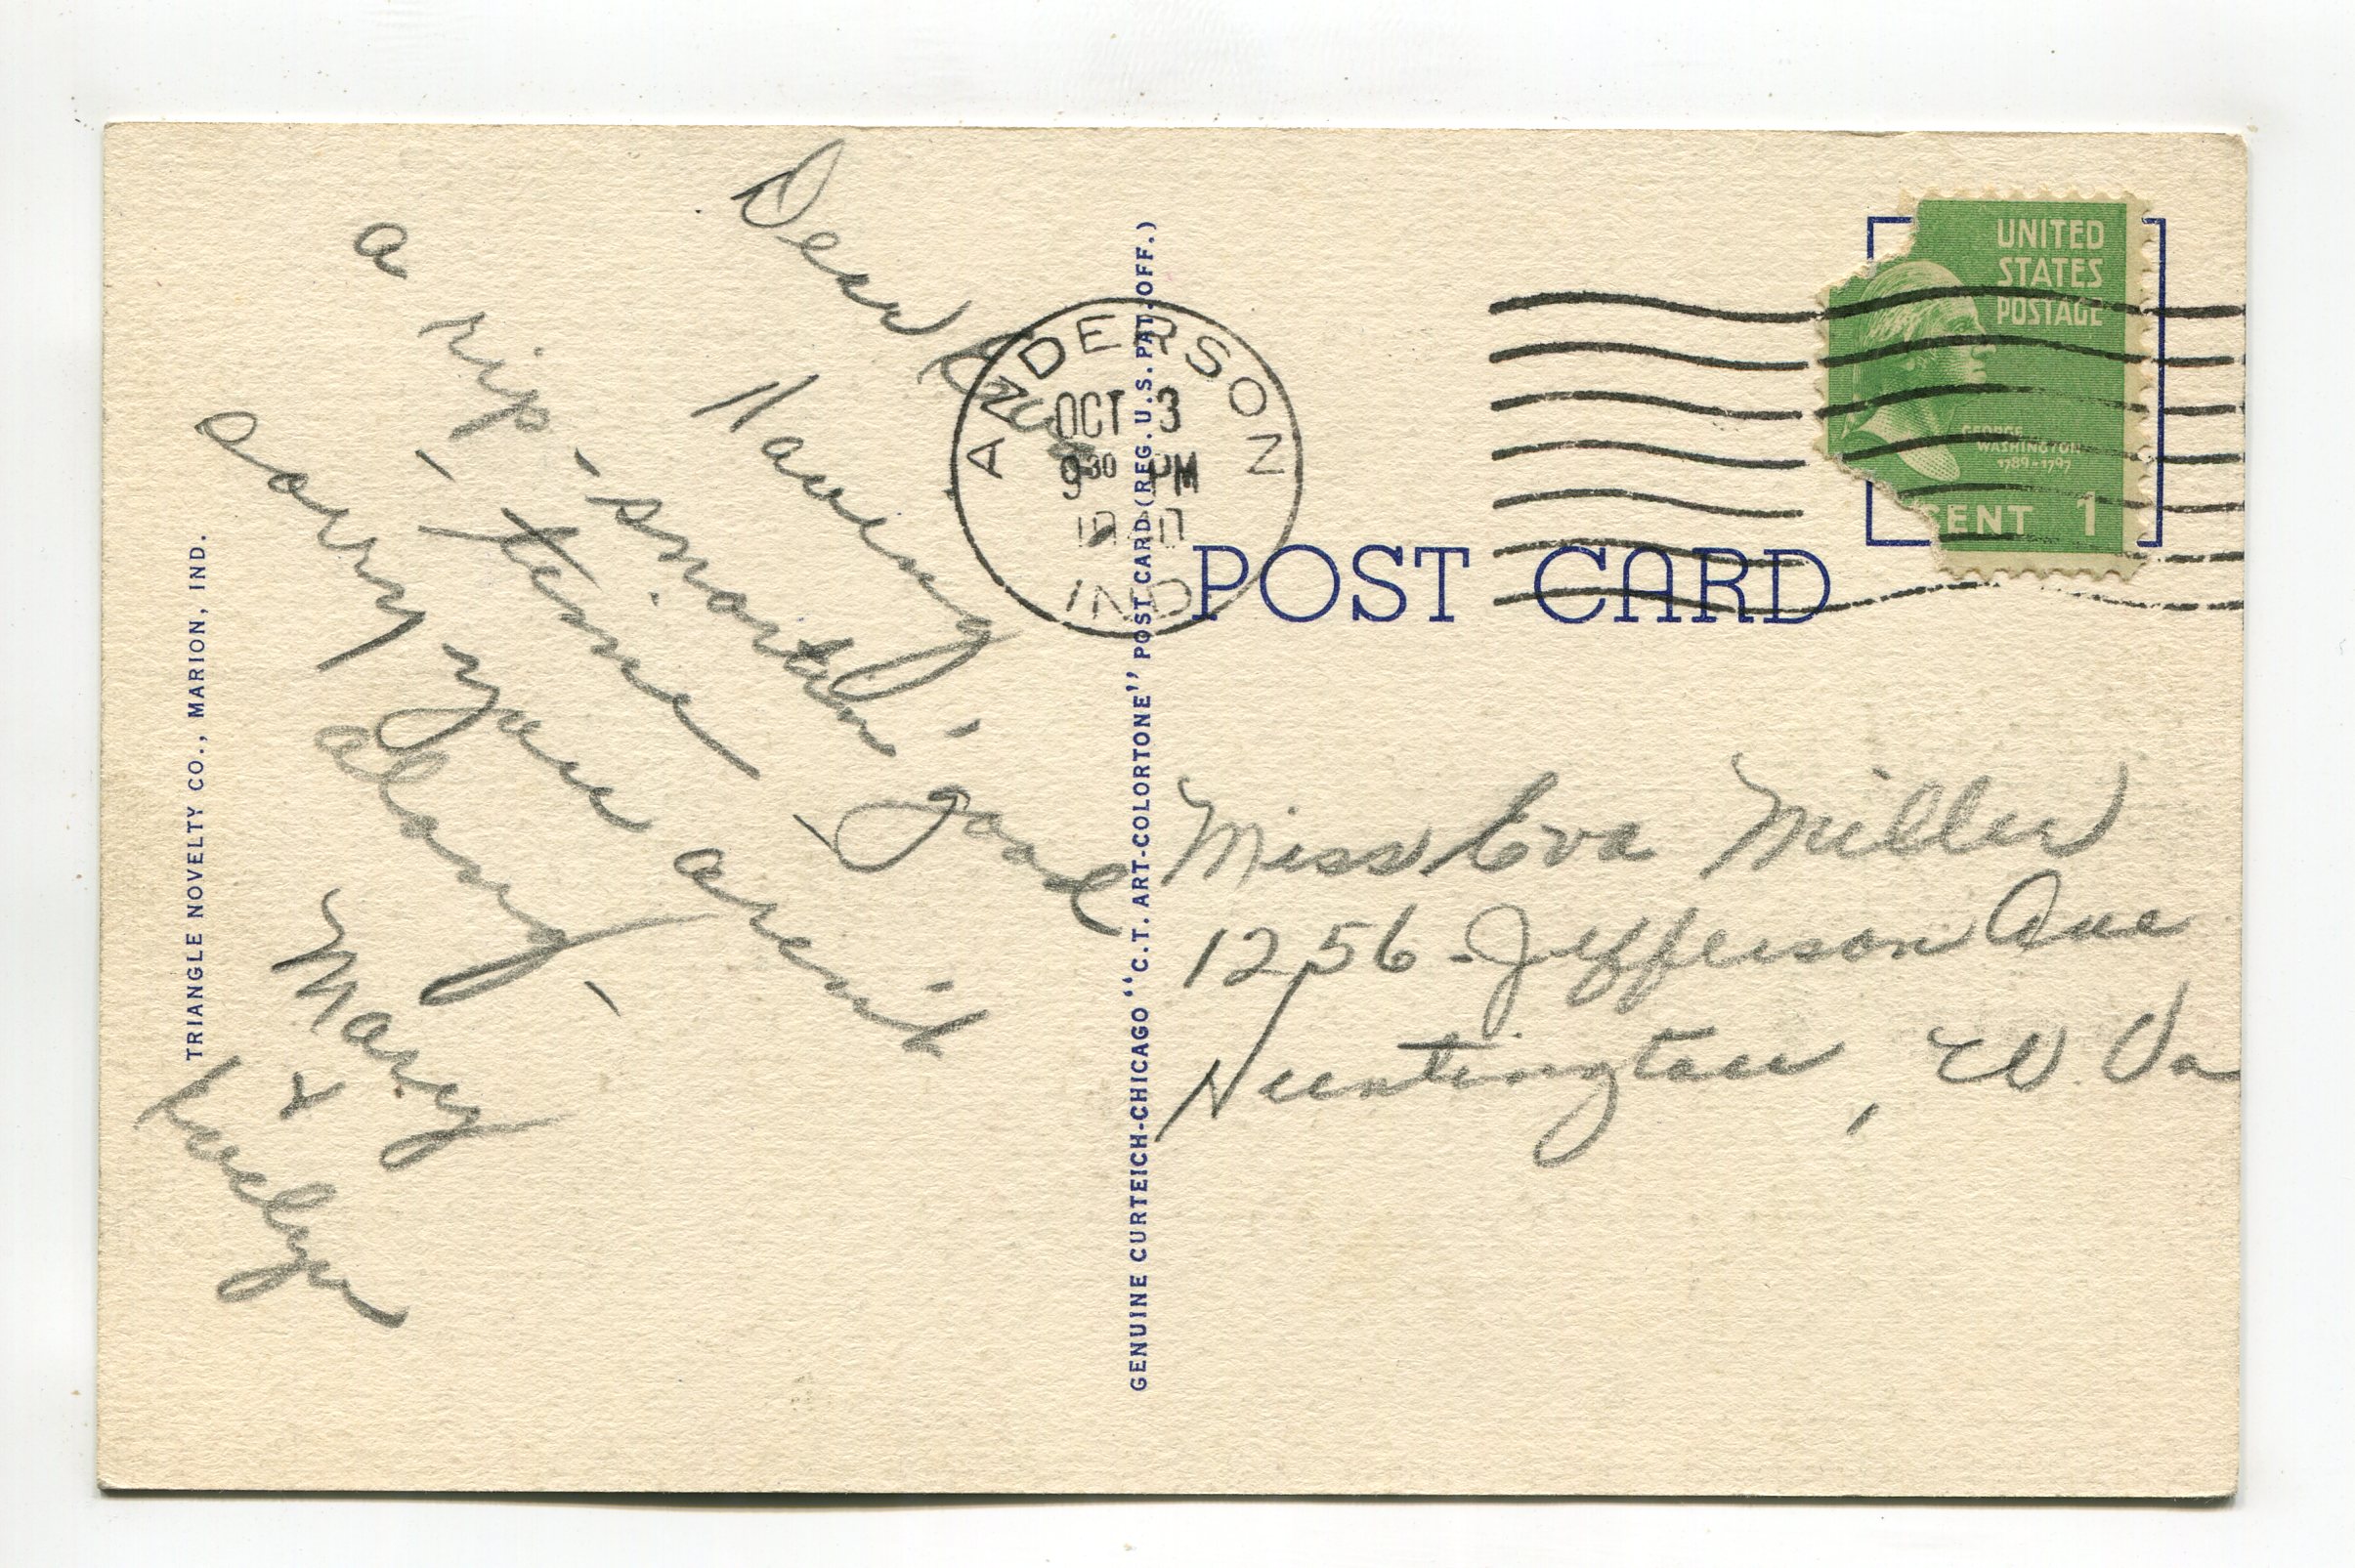 Dear Eva
Having
a rip-snortin' good
time.
Sorry you aren't
along.
Mary
&
TRIANGLE NOVELTY CO., MARION, IND.
GENUINE CURTEICH-CHICAGO "C.T. ART-COLORTONE" POST CARD (REG. U.S. PAT. OFF.)
ANDERSON
OCT 3
9 30 PM
1940
IND
UNITED
STATES
POSTAGE
GEORGE
WASHINGTON
1789-1797
CENT 1
POST CARD
Miss Eva Miller
1256 - Jefferson Ave
Huntington, W. Va